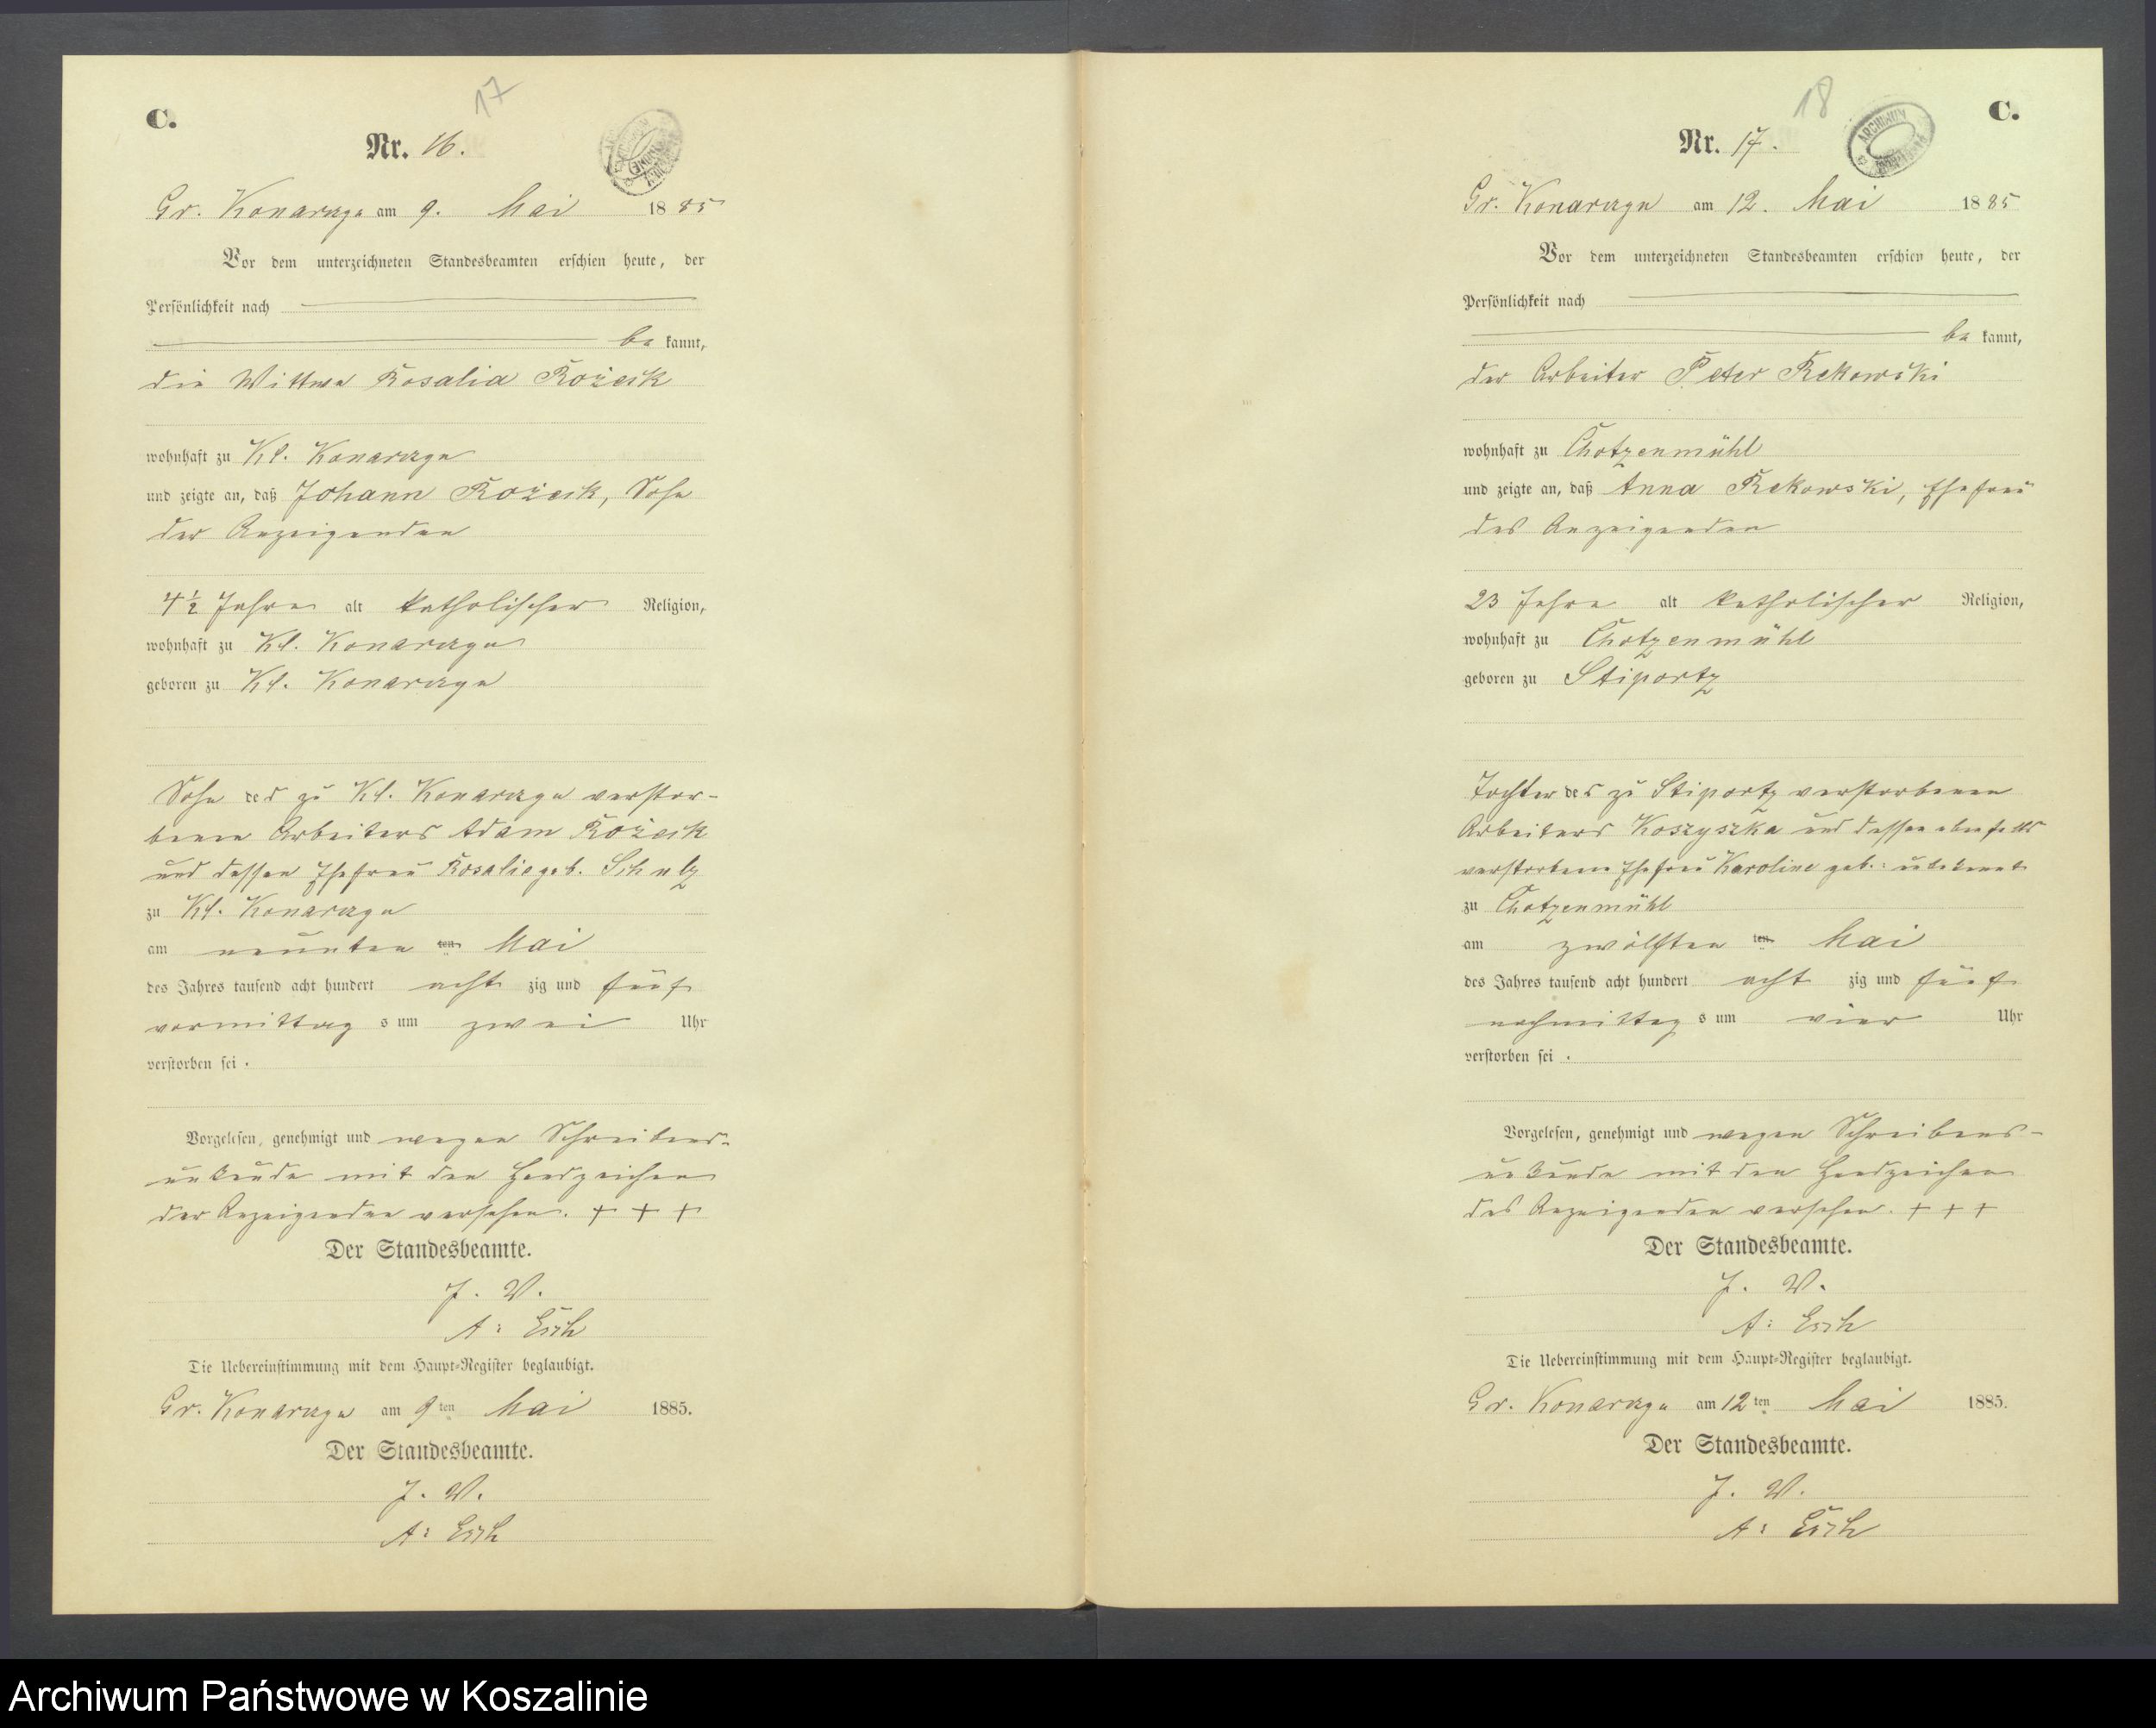 17
C.
Nr. 16.
Gr. Konarczyn am 9. Mai 1885
Vor dem unterzeichneten Standesbeamten erschien heute, der
Persönlichkeit nach
be kannt,
die Wittwe Rosalia
wohnhaft zu Kl. Konarczyn
und zeigte an, daß Johann Sohn
der Anzeigenden
4 ½ Jahre alt katholischer Religion,
wohnhaft zu Kl. Konarczyn
geboren zu Kl. Konarczyn
Sohn des zu Kl. Konarczyn verstor-
benen Arbeiters Adam
und dessen Ehefrau Rosalie geb. Schulz
zu Kl. Konarczyn
am neunten ten Mai
des Jahres tausend acht hundert acht zig und fünf
vormittag s um zwei Uhr
verstorben sei.
Vorgelesen, genehmigt und wegen Schreibens-
unkunde mit den Handzeichen
der Anzeigenden versehen. + + +
Der Standesbeamte.
J. V.
A:
Die Uebereinstimmung mit dem Haupt-Register beglaubigt.
Gr. Konarczyn am 9ten Mai 1885.
Der Standesbeamte.
J. V.
A:
18
C.
Nr. 17.
ARCHIWUM
Gr. Konarczyn am 12. Mai 1885
Vor dem unterzeichneten Standesbeamten erschien heute, der
Persönlichkeit nach
be kannt,
der Arbeiter Peter Rekowski
wohnhaft zu Chotzenmühl
und zeigte an, daß Anna Rekowski, Ehefrau
des Anzeigenden
23 Jahre alt katholischer Religion,
wohnhaft zu Chotzenmühl
geboren zu Stiportz
Tochter des zu Stiportz verstorbenen
Arbeiters Koszyszka und dessen ebenfalls
verstorbene Ehefrau Karoline geb.: unbekannt
zu Chotzenmühl
am zwölften ten Mai
des Jahres tausend acht hundert acht zig und fünf
nachmittag s um vier Uhr
verstorben sei.
Vorgelesen, genehmigt und wegen Schreibens-
unkunde mit den Handzeichen
des Anzeigenden versehen. + + +
Der Standesbeamte.
J. V.
A:
Die Uebereinstimmung mit dem Haupt-Register beglaubigt.
Gr. Konarczyn am 12ten Mai 1885.
Der Standesbeamte.
J. V.
A:
Archiwum Państwowe w Koszalinie